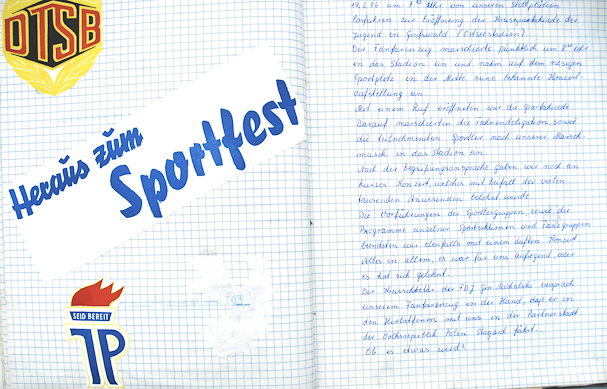 DTSB
Heraus zum
Sportfest
SEID BEREIT
JP
19.6.76 um 7 Uhr von unseren Stellplätzen
vorfuhren zur Eröffnung der Kreisspartakiade der
Jugend in Greifswald (Ostseestadion).
Der Fanfarenzug marschierte pünktlich um 8 Uhr
in das Stadion ein und nahm auf dem riesigen
Sportplatz in der Mitte seine bekannte Konzert-
aufstellung ein.
Mit einem Ruf eröffneten wir die Spartakiade.
Darauf marschierten die Fahnendelegation, sowie
die teilnehmenden Sportler nach unserer Marsch-
musik in das Stadion ein.
Nach der Begrüßungsansprache gaben wir noch ein
kurzes Konzert, welches mit Beifall der vielen
tausenden Anwesenden belohnt wurde.
Die Vorführungen der Sportlergruppen, sowie die
Programme einzelner Sportsektionen und Tanzgruppen
beendeten wir ebenfalls mit einem duften Konzert.
Alles in allem, es war für uns aufregend, aber
es hat sich gelohnt.
Der Kreissekretär der FDJ Gen. versprach
unserem Fanfarenzug in die Hand, daß er in
den Herbstferien mit uns in der Partnerstadt
der Volksrepublik Polen Stagard fährt.
Ob es etwas wird?